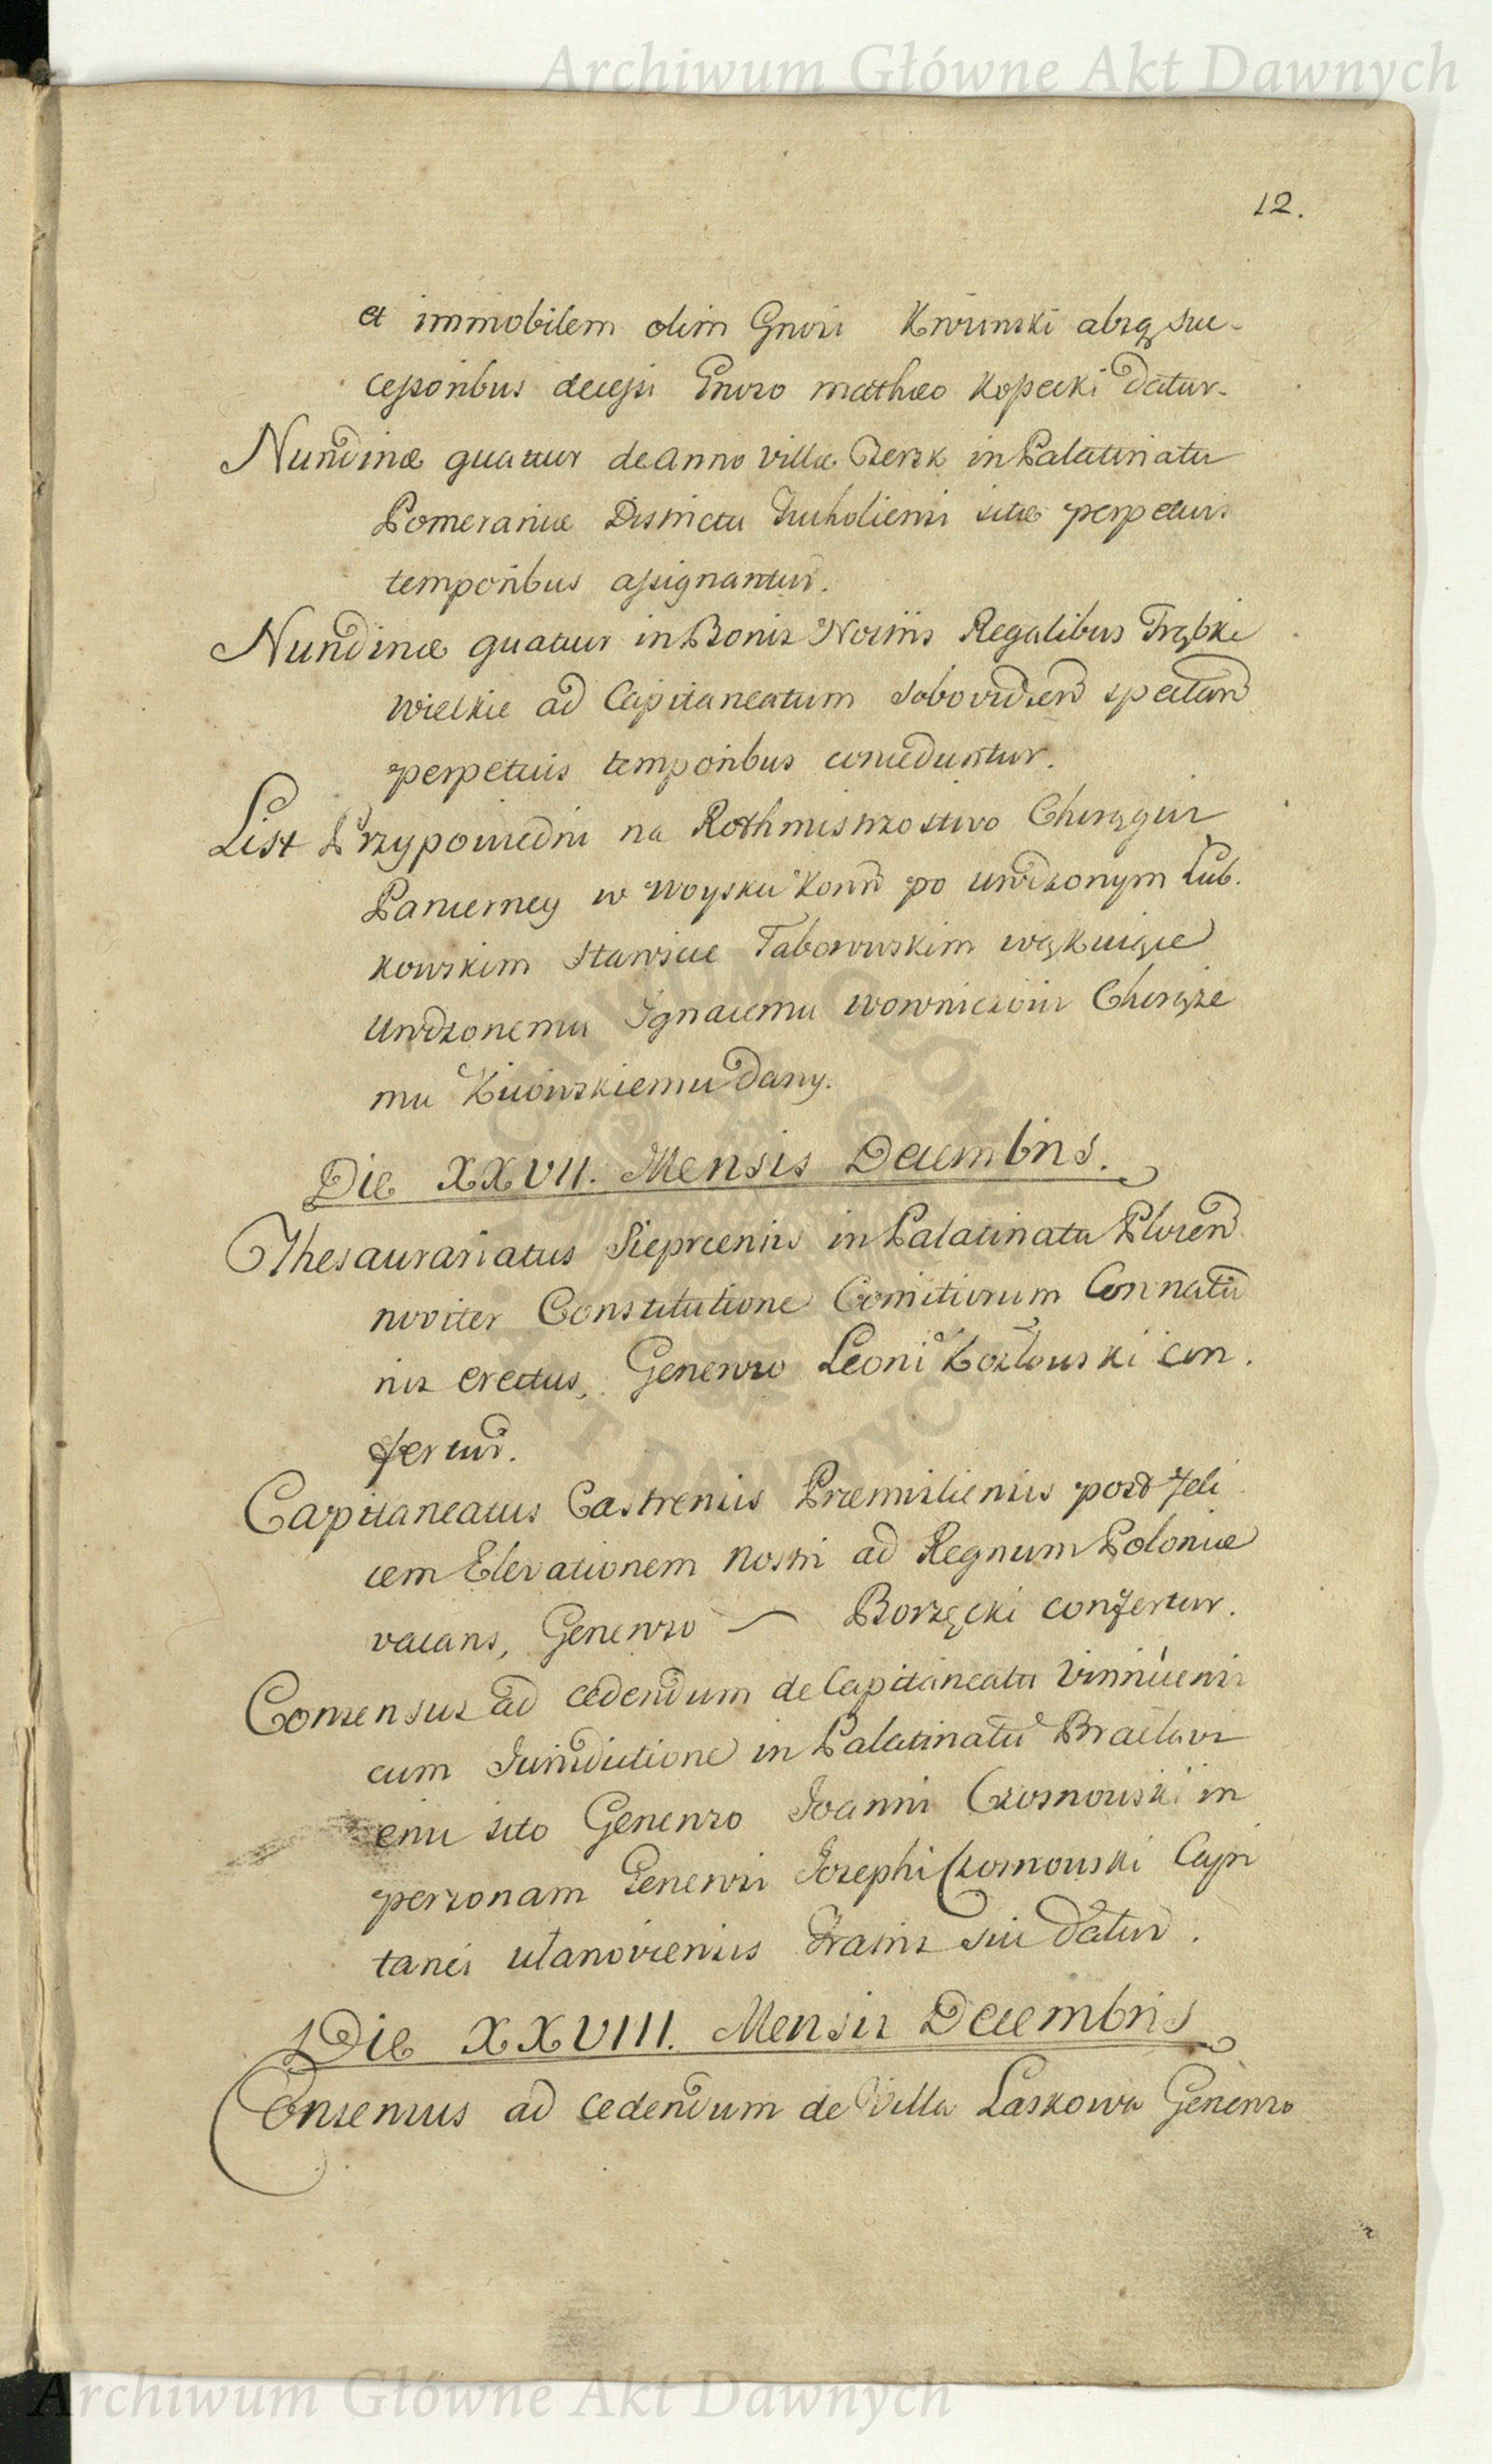 Archiwum Główne Akt Dawnych
12.
et immobilem olim Gnosi Krzinski absq suc-
cessoribus decessi Gnoso Mathæo Kopecki datur.
Nundinæ quatuor de anno villæ Czersk in Palatinatu
Pomeraniæ Districtu Tucholiensi sitæ perpetuis
temporibus assignantur.
Nundinæ quatuor in Bonis Nostris Regalibus Trąbki
Wielkie ad Capitaneatum Sobovidzen spectan
perpetuis temporibus conceduntur.
List Przypowiedni na Rothmistrzostwo Chorągwi
Pancerney w Woysku Koron po Urodzonym Lub.
kowskim Stawisce Taborowskim wąkuiące
Urodzonemu Ignacemu Łowniczoiu Chorąże
mu Kiiowskiemu dany.
Die XXVII. Mensis Decembris.
Thesaurariatus Sieprcensis in Palatinatu Plocen
noviter Constitutione Comitiorum Coronatio
nis erectus, Generoso Leoni Kozłowski con.
fertur.
Capitaneatus Castrensis Præmisliensis post feli
cem Elevationem Nostri ad Regnum Poloniæ
vacans, Generoso ~ Borzęcki confertur.
Consensus ad cedendum de Capitaneatu Vinnicensi
cum Jurisdictione in Palatinatu Braclavi
ensi sito Generoso Joanni Czosnowski in
personam Generosi Josephi Czosnowski Capi
tanei Ulanoviensis Fratris sui datur.
Die XXVIII. Mensis Decembris
Consensus ad cedendum de Villa Laskowa Generoso
Archiwum Główne Akt Dawnych